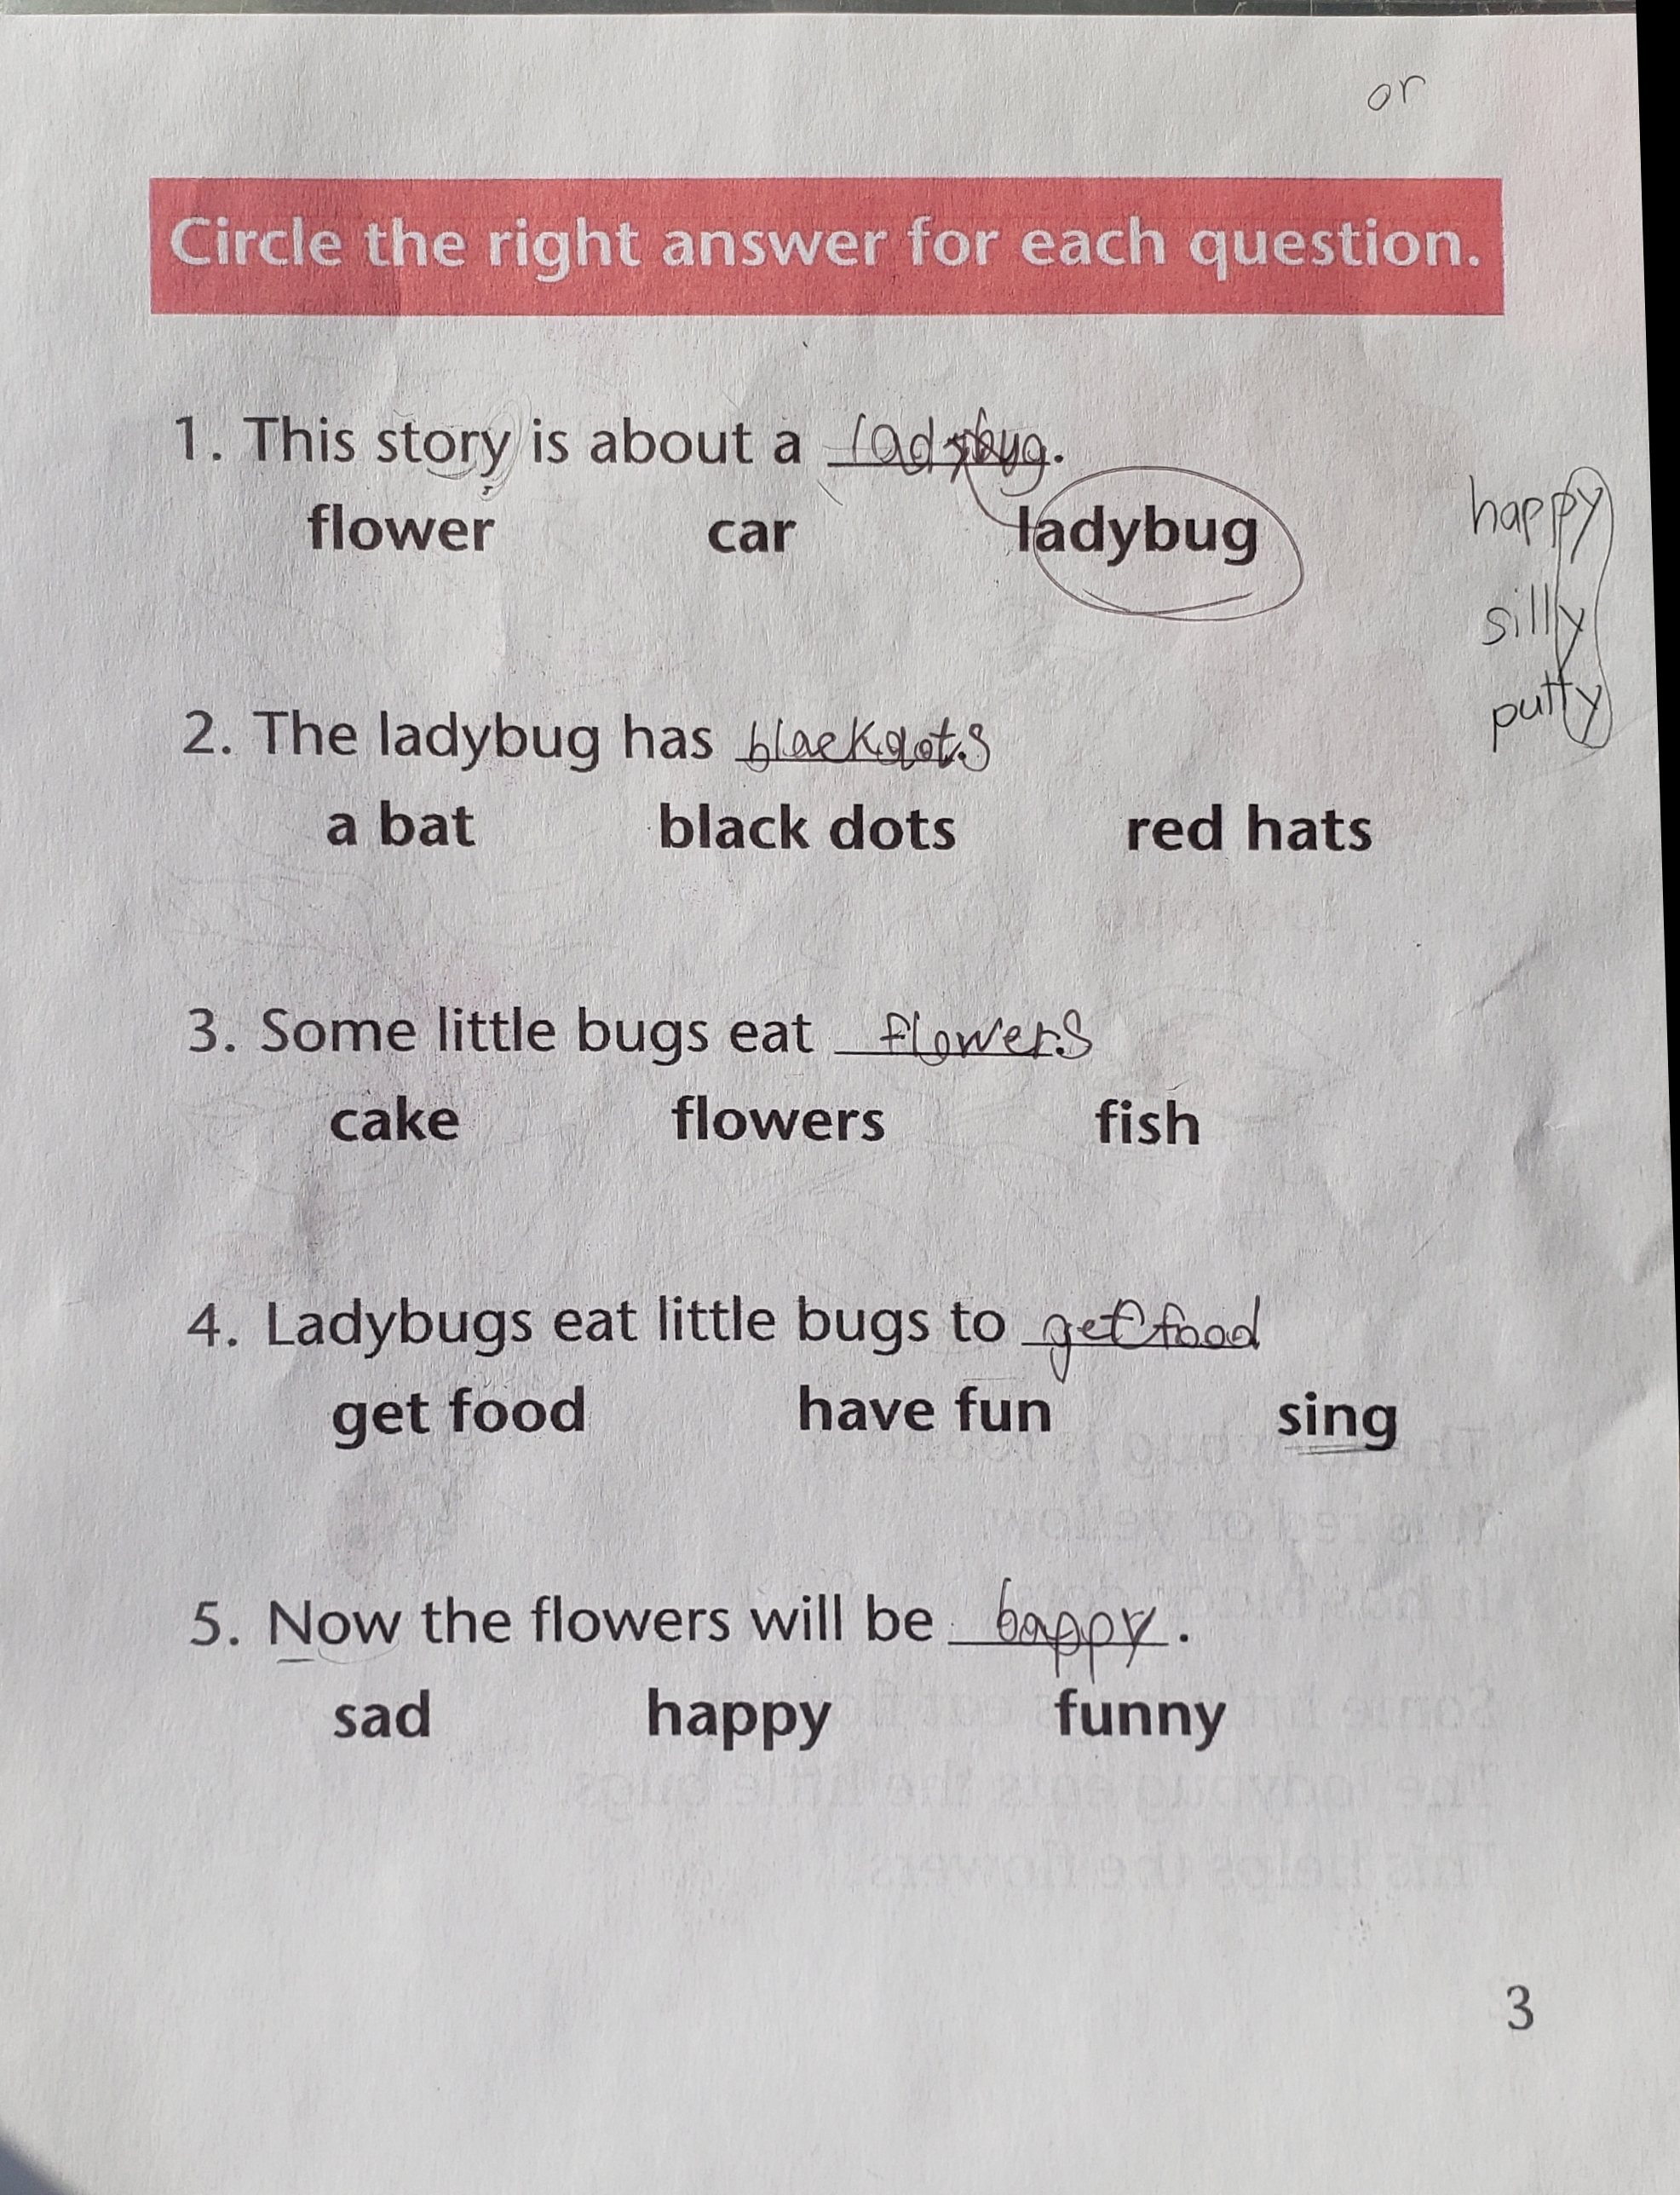 or
Circle the right answer for each question.
1. This story is about a ladybug.
flower car ladybug
happy
silly
putty
2. The ladybug has blackdots
a bat black dots red hats
3. Some little bugs eat flowers
cake flowers fish
4. Ladybugs eat little bugs to get food
get food have fun sing
5. Now the flowers will be bappy.
sad happy funny
3